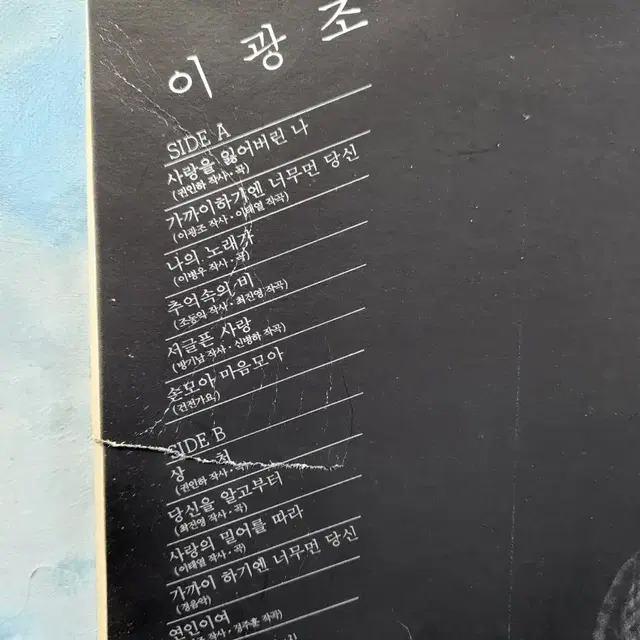 이광조
SIDE A
사랑을 잃어버린 나
(권인하 작사·곡)
가까이하기엔 너무먼 당신
(이광조 작사·이태열 작곡)
나의 노래가
(이병우 작사·곡)
추억속의 비
(조동익 작사·최진영 작곡)
서글픈 사랑
(방기남 작사·신병하 작곡)
손모아 마음모아
(건전가요)
SIDE B
상 처
(권인하 작사·곡)
당신을 알고부터
(최진영 작사·곡)
사랑의 밀어를 따라
(이태열 작사·곡)
가까이 하기엔 너무먼 당신
(경음악)
연인이여
작사·정주훈 작곡)